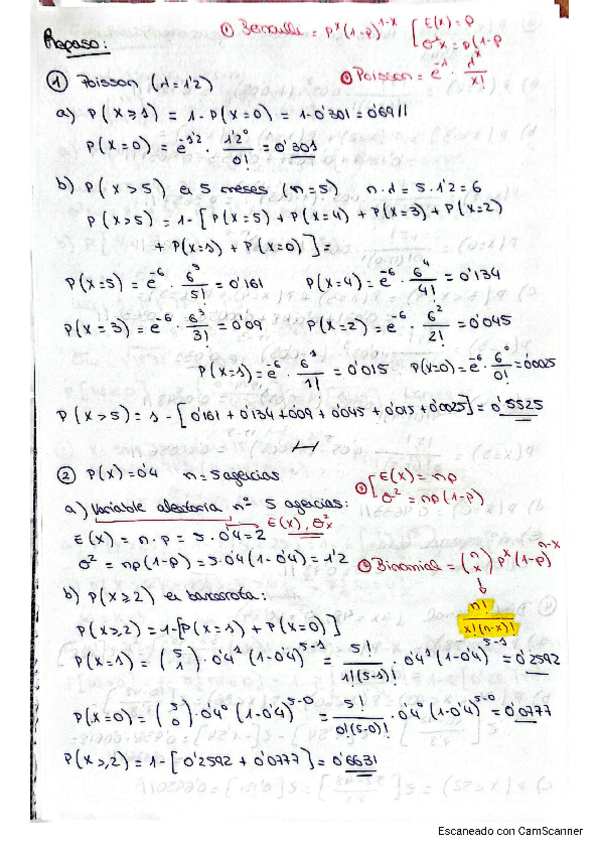 ① Bernoulli = p^x (1-p)^{1-x} [ E(x) = p
Repaso:
σ²x = p(1-p
① Poisson (λ=1'2)
① Poisson = e^{-λ} · λ^x / x!
a) P(X≥1) = 1 - P(X=0) = 1-0'301 = 0'6911
P(X=0) = e^{-1'2} · 1'2^0 / 0! = 0'301
b) P(X>5) en 5 meses (n=5) n·λ = 5·1'2 = 6
P(X>5) = 1 - [P(X=5) + P(X=4) + P(X=3) + P(X=2)
+ P(X=1) + P(X=0)] =
P(X=5) = e^{-6} · 6^5 / 5! = 0'161 P(X=4) = e^{-6} · 6^4 / 4! = 0'134
P(X=3) = e^{-6} · 6^3 / 3! = 0'09 P(X=2) = e^{-6} · 6^2 / 2! = 0'045
P(X=1) = e^{-6} · 6^1 / 1! = 0'015 P(X=0) = e^{-6} · 6^0 / 0! = 0'0025
P(X>5) = 1 - [0'161 + 0'134 + 0'09 + 0'045 + 0'015 + 0'0025] = 0'5525
② P(X) = 0'4 n = 5 agencias
① [ E(X) = np
σ² = np(1-p)
a) Variable aleatoria nº 5 agencias:
E(X), σ²x
E(X) = n·p = 5·0'4 = 2
σ² = np(1-p) = 5·0'4(1-0'4) = 1'2
① Binomial = (n x) p^x (1-p)^{n-x}
n! / x!(n-x)!
b) P(X≥2) en bancarrota:
P(X≥2) = 1-[P(X=1) + P(X=0)]
P(X=1) = (5 1) · 0'4^1 (1-0'4)^{5-1} = 5! / 1!(5-1)! · 0'4^1 (1-0'4)^{5-1} = 0'2592
P(X=0) = (5 0) · 0'4^0 (1-0'4)^{5-0} = 5! / 0!(5-0)! · 0'4^0 (1-0'4)^{5-0} = 0'0777
P(X≥2) = 1 - [0'2592 + 0'0777] = 0'6631
Escaneado con CamScanner